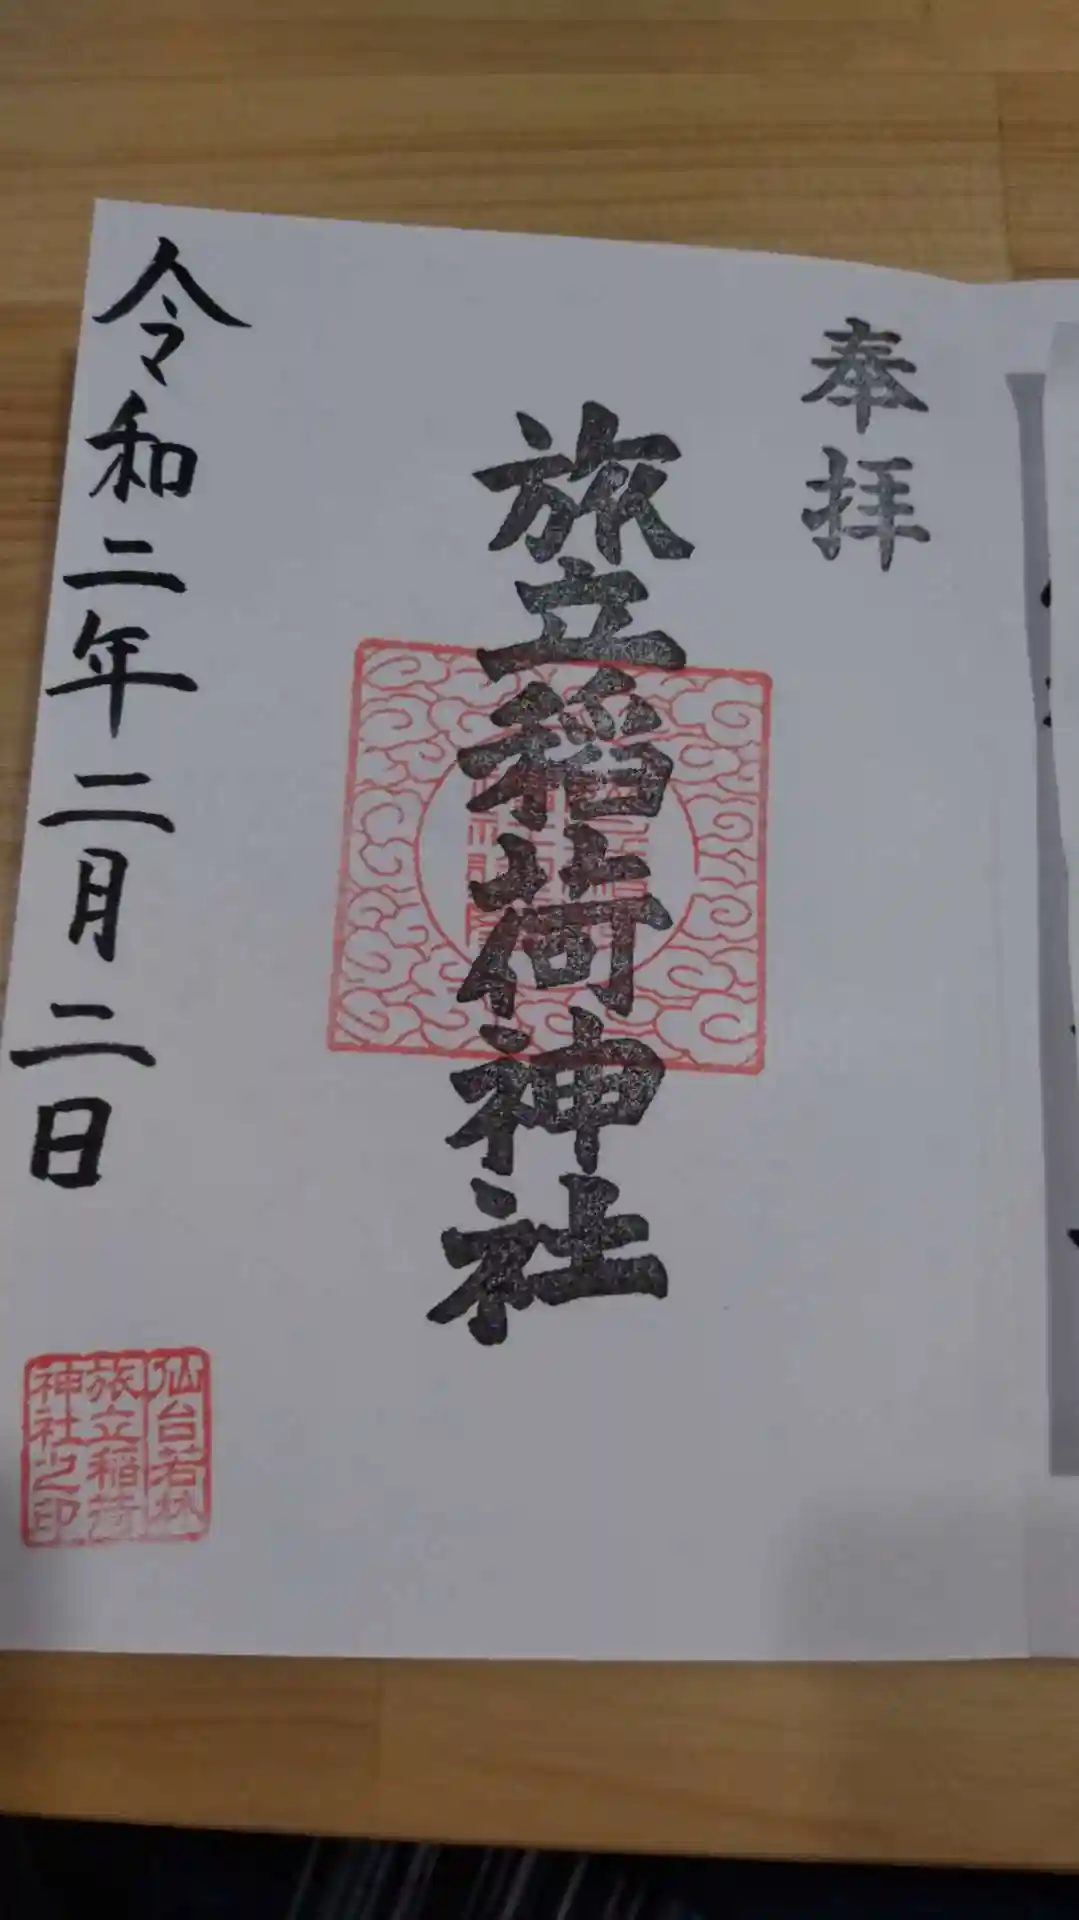 奉拝
旅立稲荷神社
令和二年二月二日
仙台若林
旅立稲荷
神社之印